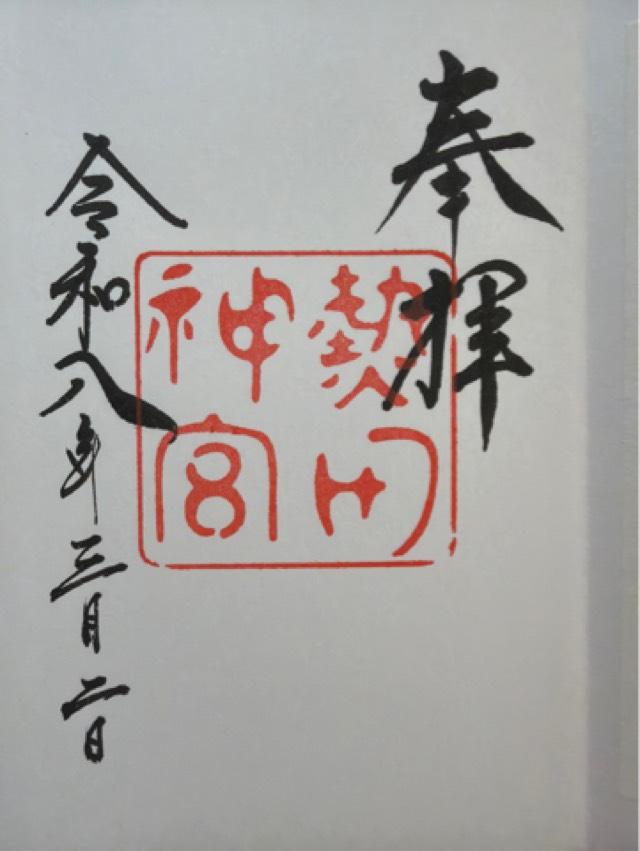 奉拝
熱田
神宮
令和八年三月二日